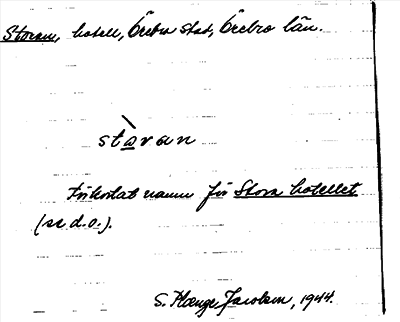 Storan, hotell, Örebro stad, Örebro län.
stàran
Förkortat namn för Stora hotellet
(se d.o.).
S. Plange Jacobson, 1944.